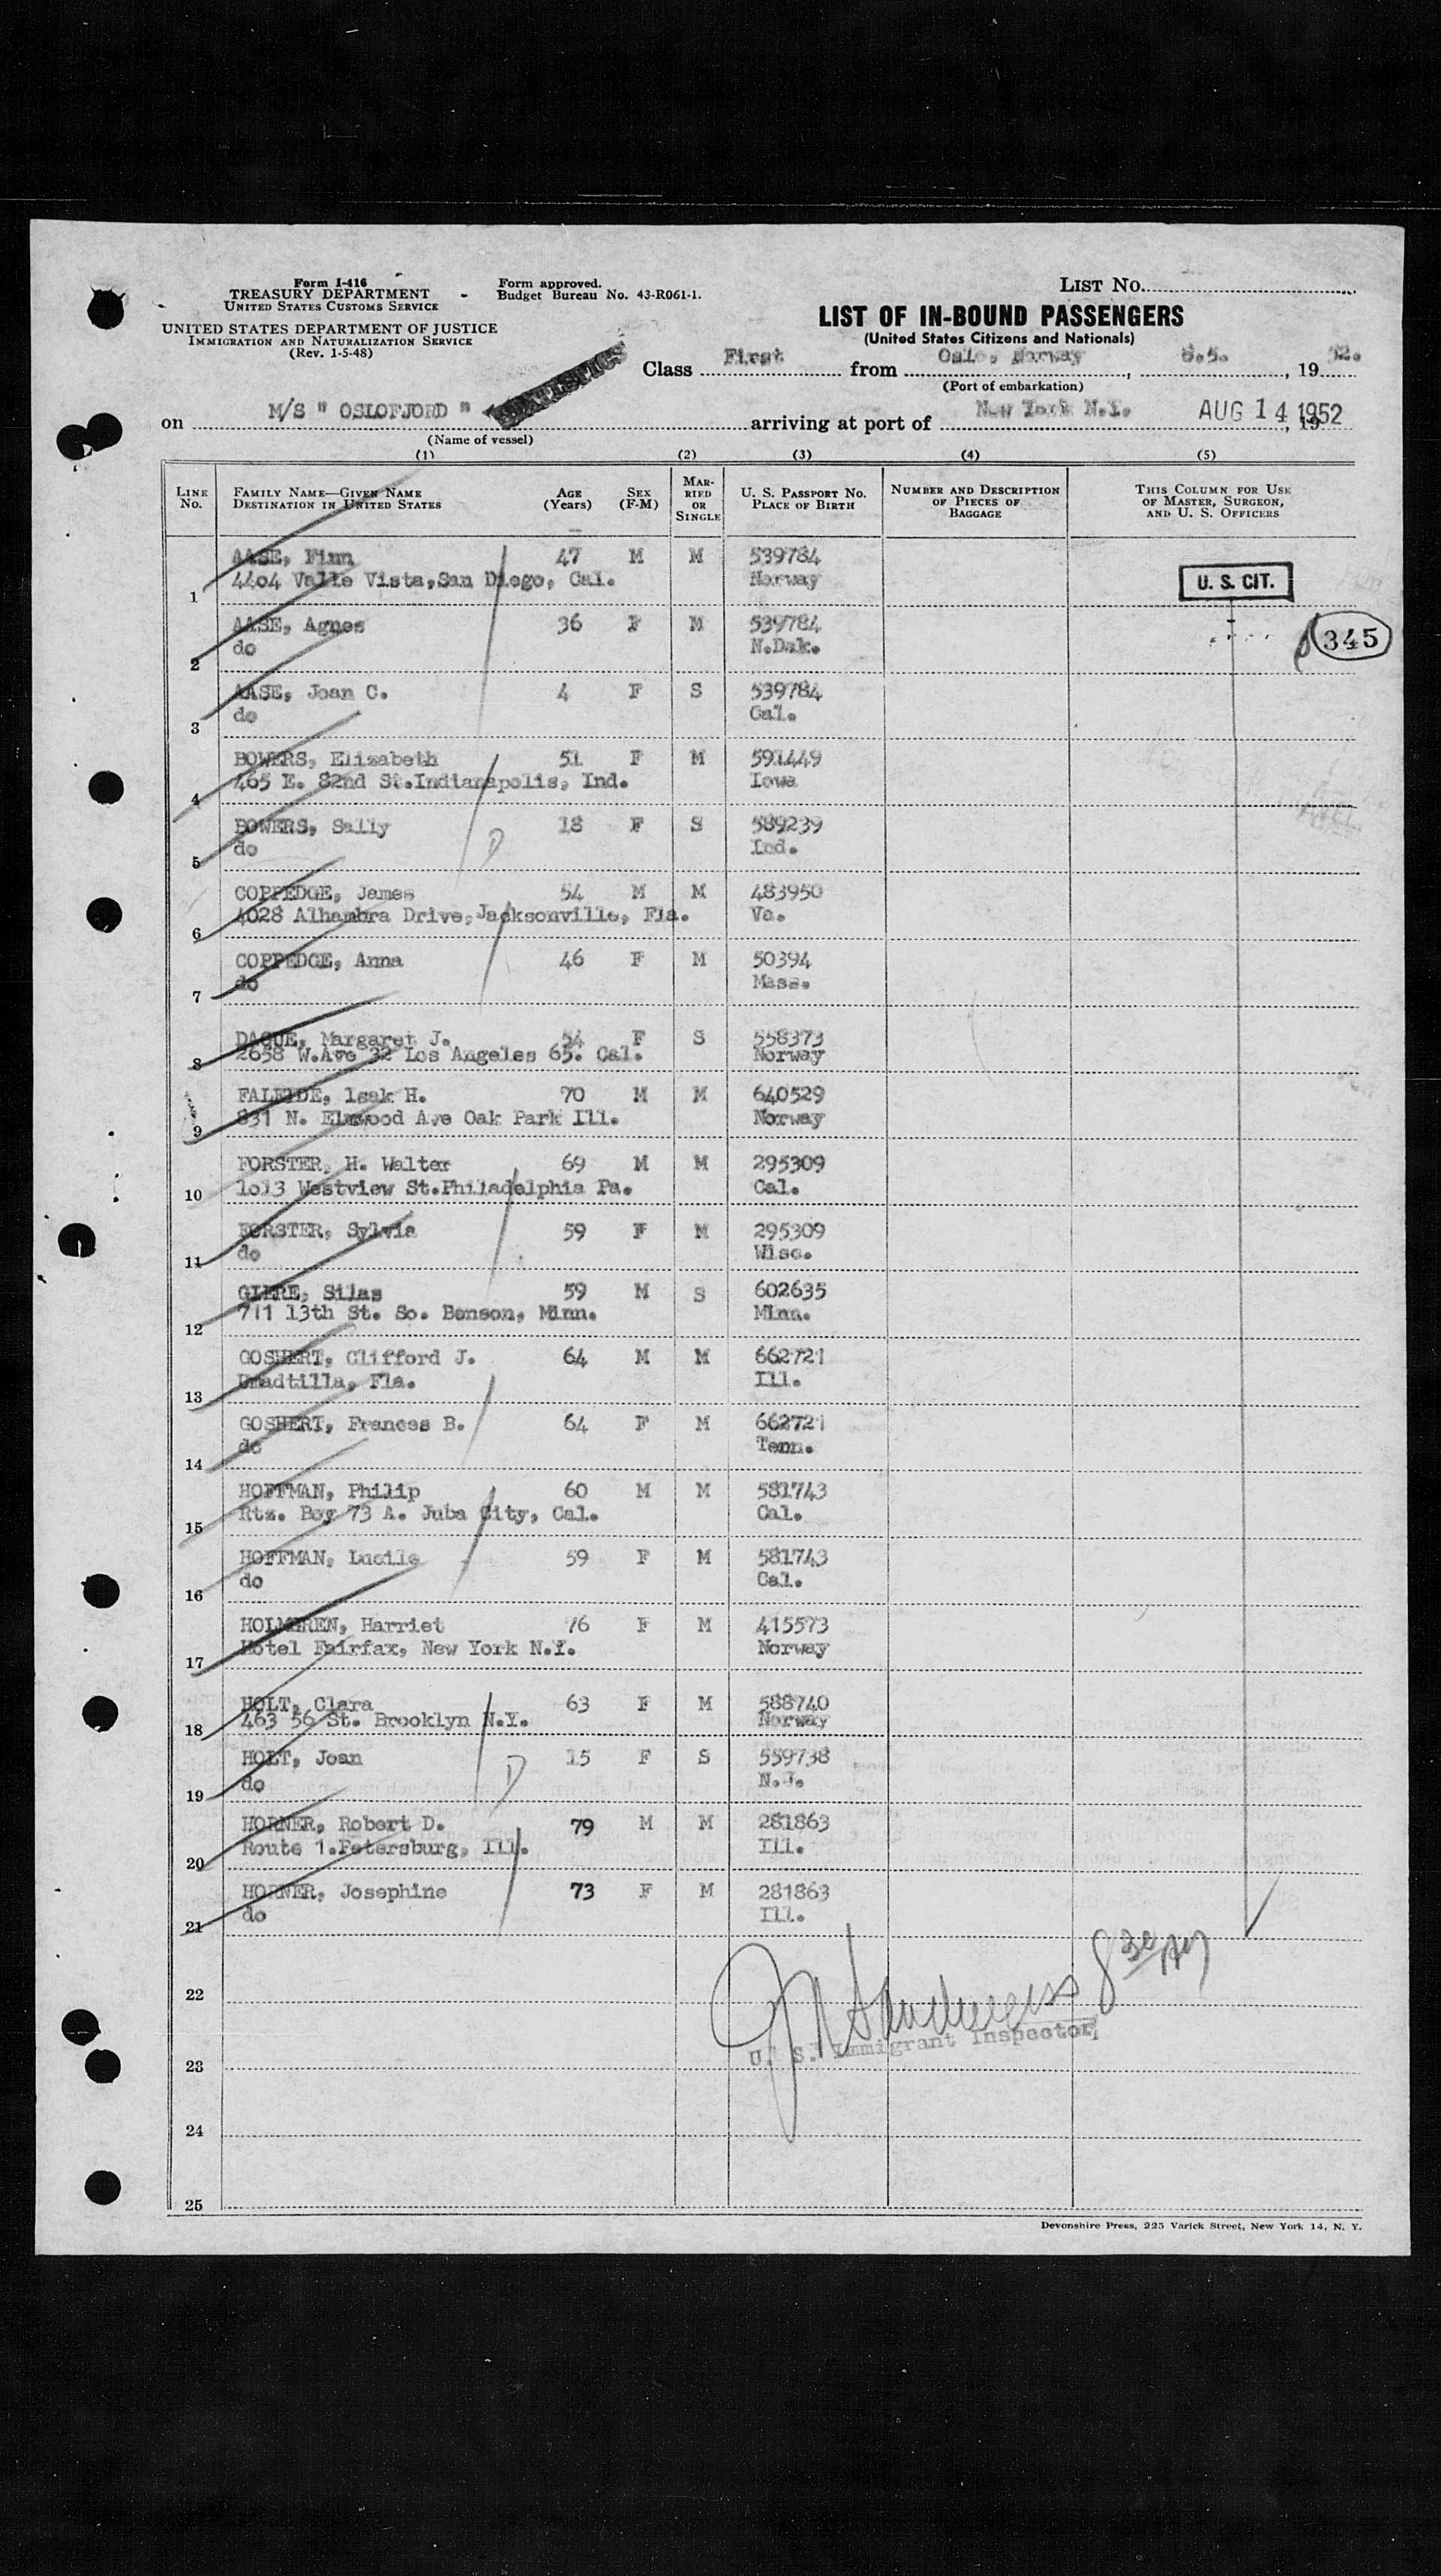 Form I-416
TREASURY DEPARTMENT
UNITED STATES CUSTOMS SERVICE
UNITED STATES DEPARTMENT OF JUSTICE
IMMIGRATION AND NATURALIZATION SERVICE
(Rev. 1-5-48)
Form approved.
Budget Bureau No. 43-R061-1.
LIST NO.
LIST OF IN-BOUND PASSENGERS
(United States Citizens and Nationals)
STATISTICS
Class First from Oslo, Norway, 8.5., 19 52.
(Port of embarkation)
on M/S " OSLOFJORD " arriving at port of New York N.Y. AUG 14 1952, 19
(Name of vessel)
(1) (2) (3) (4) (5)
LINE NO. FAMILY NAME—GIVEN NAME DESTINATION IN UNITED STATES AGE (Years) SEX (F-M) MARRIED OR SINGLE U. S. PASSPORT NO. PLACE OF BIRTH NUMBER AND DESCRIPTION OF PIECES OF BAGGAGE THIS COLUMN FOR USE OF MASTER, SURGEON, AND U. S. OFFICERS
AASE, Finn 47 M M 539784
1 4404 Valle Vista,San Diego, Cal. Norway U. S. CIT.
AASE, Agnes 36 F M 539784
2 do N.Dak. 345
AASE, Joan C. 4 F S 539784
3 do Cal.
BOWERS, Elizabeth 51 F M 591449
4 465 E. 82nd St.Indianapolis, Ind. Iowa
BOWERS, Sally 18 F S 589239
5 do Ind.
COPPEDGE, James 54 M M 483950
6 4028 Alhambra Drive,Jacksonville, Fla. Va.
COPPEDGE, Anna 46 F M 50394
7 do Mass.
DAQUE, Margaret J. 54 F S 558373
8 2658 W.Ave 32 Los Angeles 65. Cal. Norway
FALEIDE, Isak H. 70 M M 640529
9 831 N. Elmwood Ave Oak Park Ill. Norway
FORSTER, H. Walter 69 M M 295309
10 1o13 Westview St.Philadelphia Pa. Cal.
FORSTER, Sylvia 59 F M 295309
11 do Wisc.
GJERE, Silas 59 M S 602635
12 711 13th St. So. Benson, Minn. Minn.
GOSHERT, Clifford J. 64 M M 662721
13 Umadtilla, Fla. Ill.
GOSHERT, Frances B. 64 F M 662721
14 do Tenn.
HOFFMAN, Philip 60 M M 581743
15 Rtz. Boy 73 A. Juba City, Cal. Cal.
HOFFMAN, Lucile 59 F M 581743
16 do Cal.
HOLMGREN, Harriet 76 F M 415573
17 Hotel Fairfax, New York N.Y. Norway
HOLT, Clara 63 F M 588740
18 463 56 St. Brooklyn N.Y. Norway
HOLT, Joan 15 F S 559738
19 do N.J.
HORNER, Robert D. 79 M M 281863
20 Route 1.Petersburg, Ill. Ill.
HORNER, Josephine 73 F M 281863
21 do Ill.
22
8 30 AM
U. S. Immigrant Inspector,
23
24
25
Devonshire Press, 225 Varick Street, New York 14, N. Y.